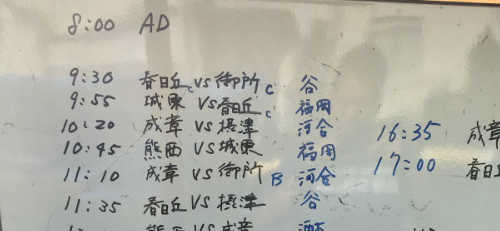 8:00 AD
9:30 春日丘C VS 御所C 谷
9:55 城東 VS 春日丘C 福岡
10:20 成章 VS 摂津 河合
10:45 熊西 VS 城東 福岡
11:10 成章 VS 御所B 河合
11:35 春日丘 VS 摂津 谷
16:35 成章
17:00 春日丘